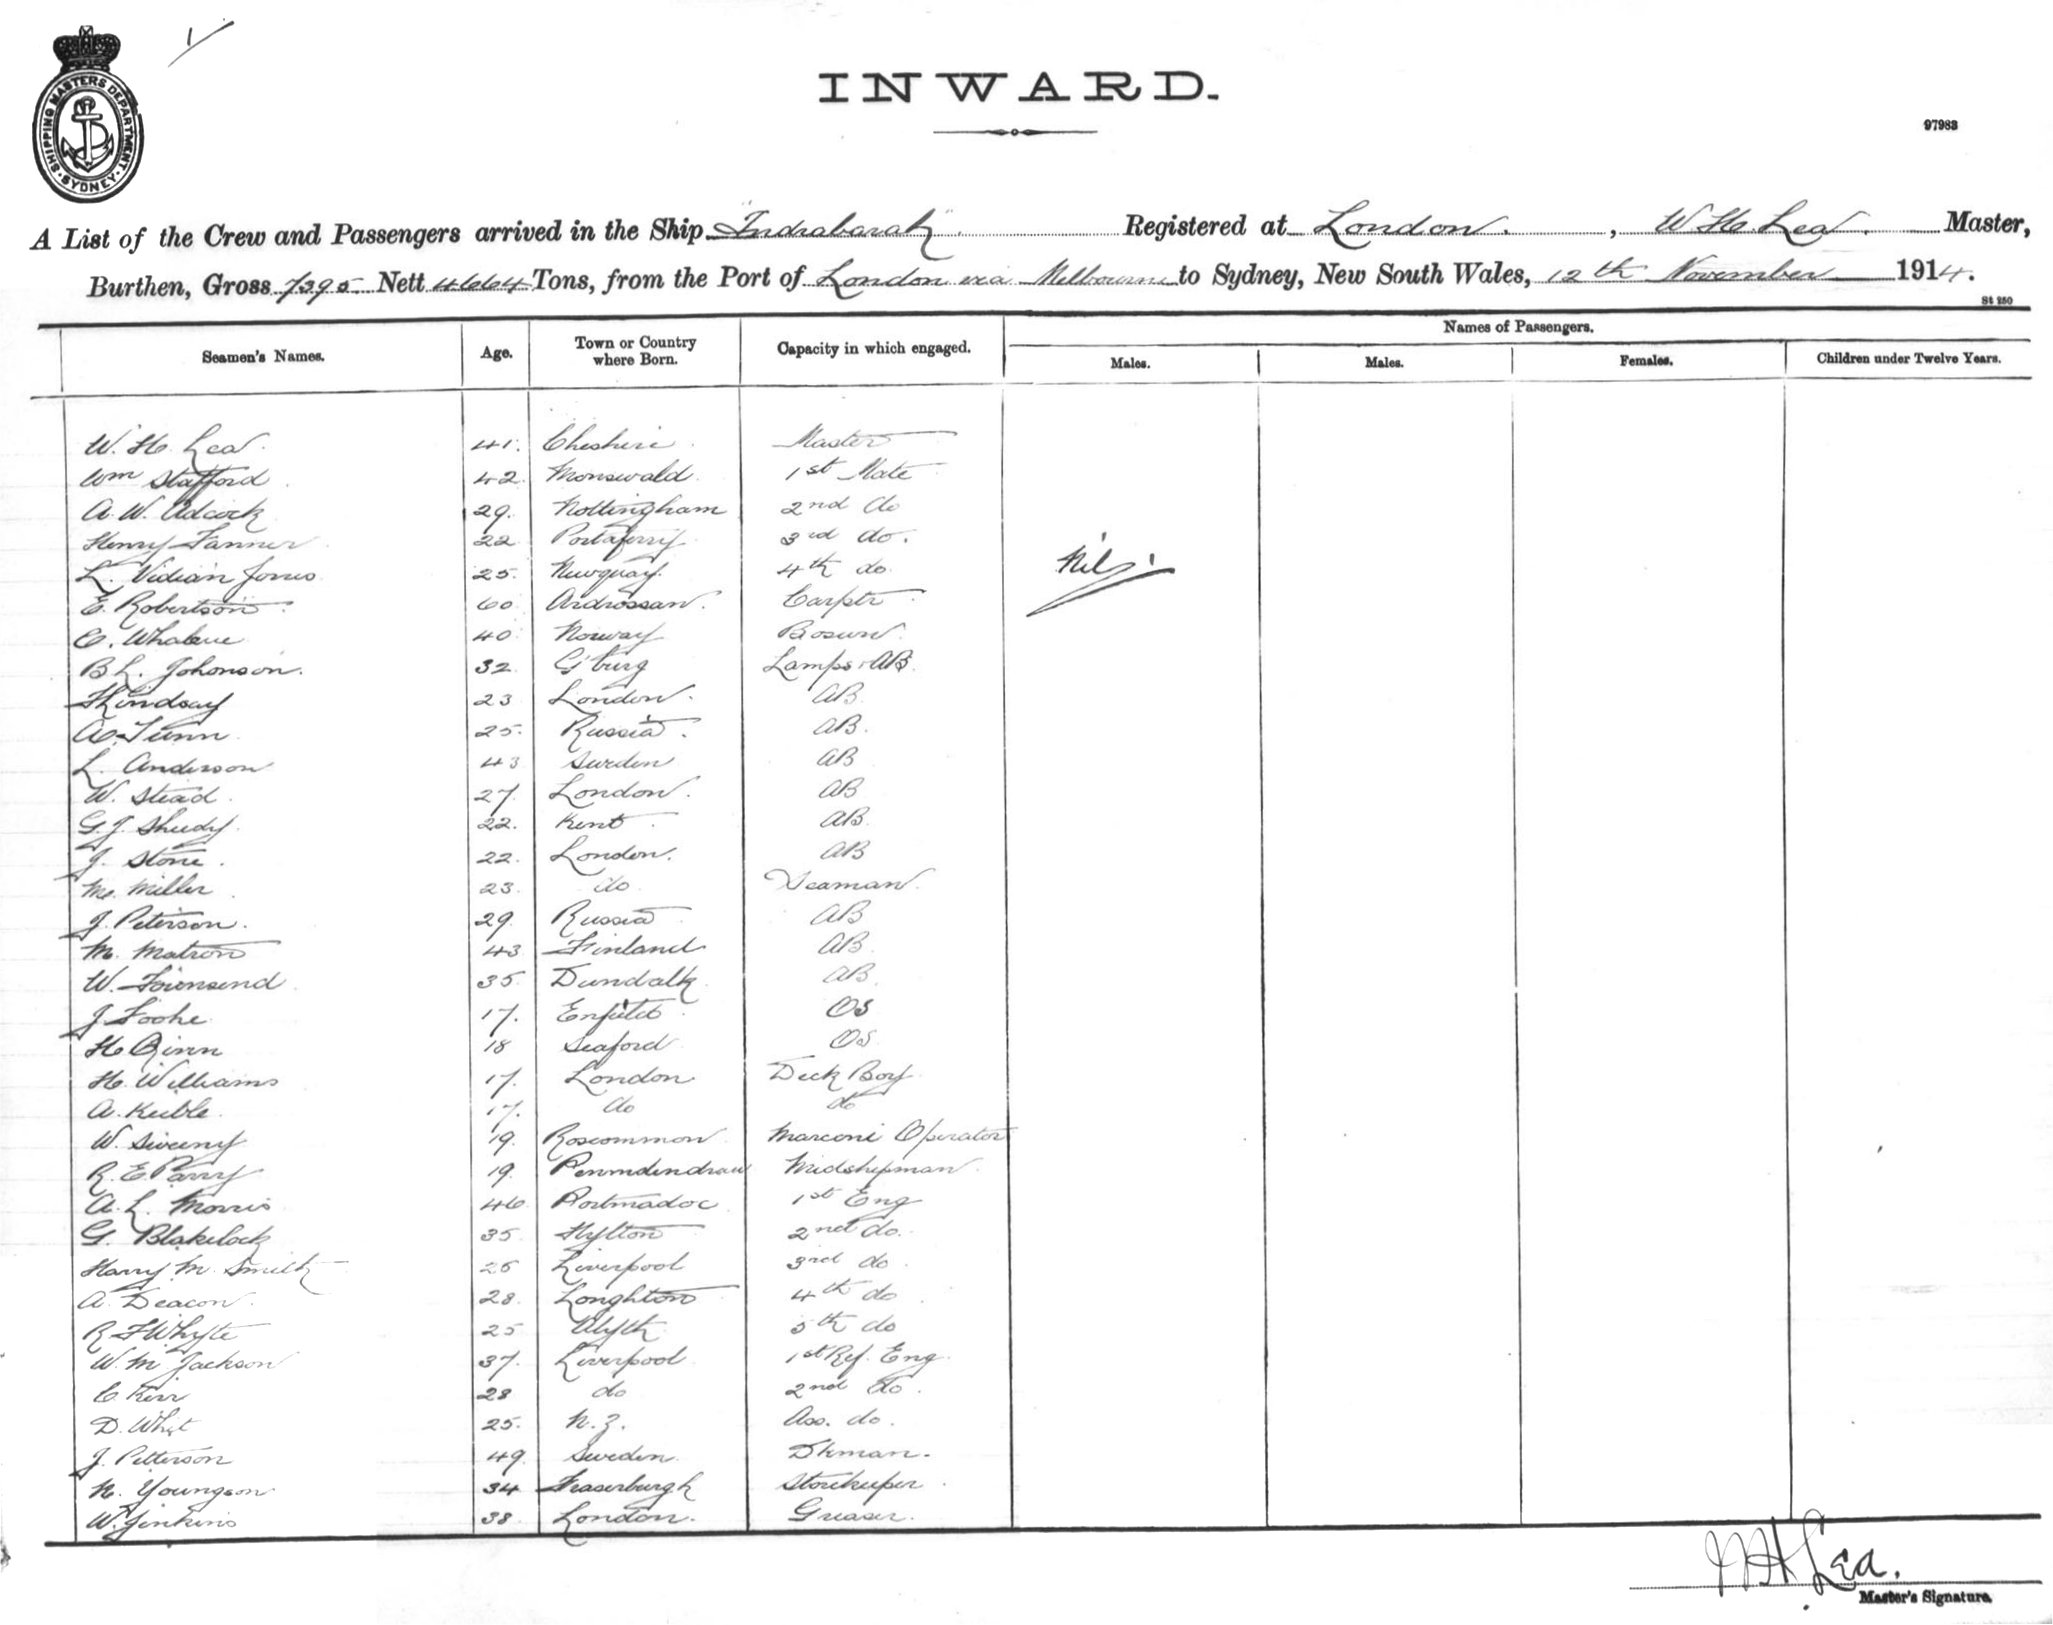 1
SHIPPING MASTERS DEPARTMENT. SYDNEY.
INWARD.
97983
A List of the Crew and Passengers arrived in the Ship "Indrabarah". Registered at London. , W. H. Lea. Master,
Burthen, Gross 7395 Nett 4664 Tons, from the Port of London via Melbourne to Sydney, New South Wales, 12th November 1914.
St 250
Names of Passengers.
Seamen's Names. Age. Town or Country where Born. Capacity in which engaged. Males. Males. Females. Children under Twelve Years.
W. H. Lea. 41. Cheshire. Master
Wm Stafford. 42. Monswald. 1st Mate
A. W. Adcock 29. Nottingham 2nd do
Henry Tanner 22 Portaferry 3rd do.
L. Vidian Jones 25. Newquay. 4th do.
Nil.
E. Robertson. 60 Ardrossan. Carptr
C. Whalene 40 Norway Bosun.
B. L. Johonson. 32 G'burg Lamps & AB.
Lindsay 23 London. AB.
A. Tunn. 25. Russia. AB.
L. Anderson 43 Sweden AB
W. Stead. 27. London. AB
G. J. Sheedy. 22. Kent AB.
J. Stone. 22. London. AB
M. Miller 23. do Seaman.
J. Peterson. 29. Russia AB
M. Matson 43 Finland AB.
W. Townsend 35 Dundalk AB.
J. Tooke 17. Enfield OS
H. 18 Seaford OS
H. Williams 17. London. Deck Boy.
A. Keible. 17. do do
W. Sweeny 19. Roscommon Marconi Operator
R. E. Parry 19. Midshipman.
A. L. Morris 46 Portmadoc 1st Eng
G. Blakelock 35 Hylton 2nd do.
Harry M. Smith 26 Liverpool 3rd do.
A. Deacon. 28. Loughton 4th do.
R. F Whyte 25 Alyth 5th do
W. M Jackson 37. Liverpool 1st Ref. Eng.
C. Kerr 28 do 2nd do.
D. Whyt 25. N.Z. Ass. do.
J. Petterson 49. Sweden. Dkman.
N. Youngson 34 Fraserburgh Storekeeper.
W. Jenkins 38. London. Greaser.
W H Lea.
Master's Signature.